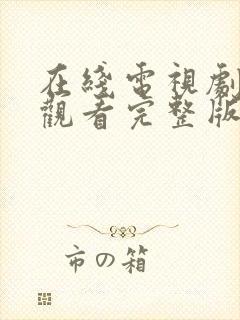 在綫電視劇
觀看完整版
市の箱